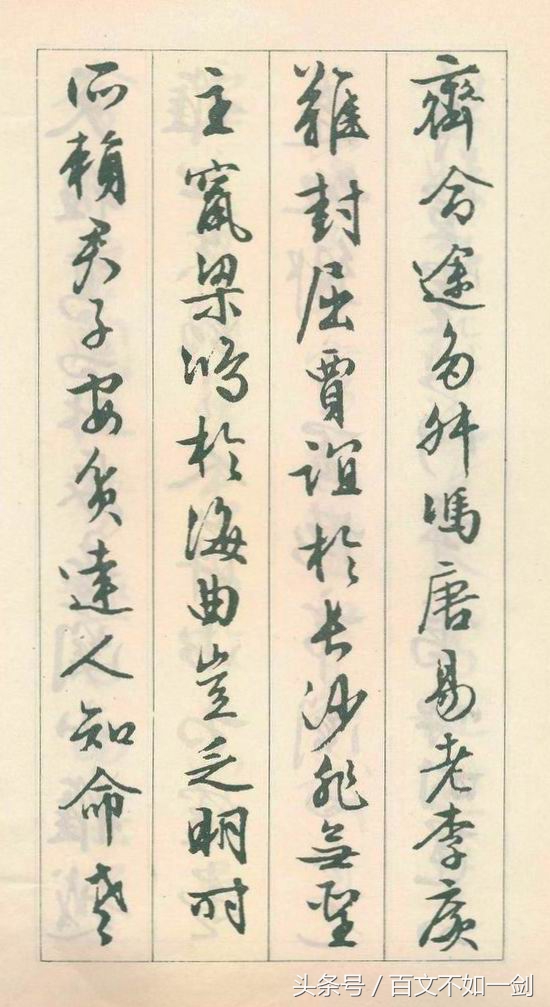 齊命途多舛馮唐易老李廣
難封屈賈誼於長沙非無聖
主竄梁鴻於海曲豈乏明时
所賴君子安貧達人知命老
头条号 / 百文不如一剑